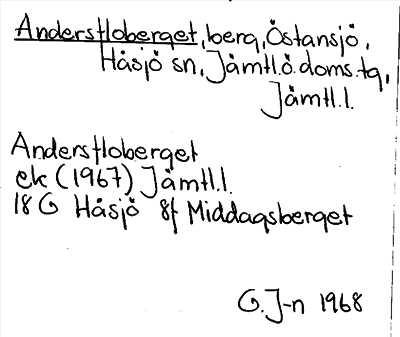 Anderstloberget, berg, Östansjö,
Håsjö sn, Jämtl.ö.doms.tg,
Jämtl.l.
Anderstloberget
ek (1967) Jämtl.l.
18G Håsjö 8f Middagsberget
G.J-n 1968